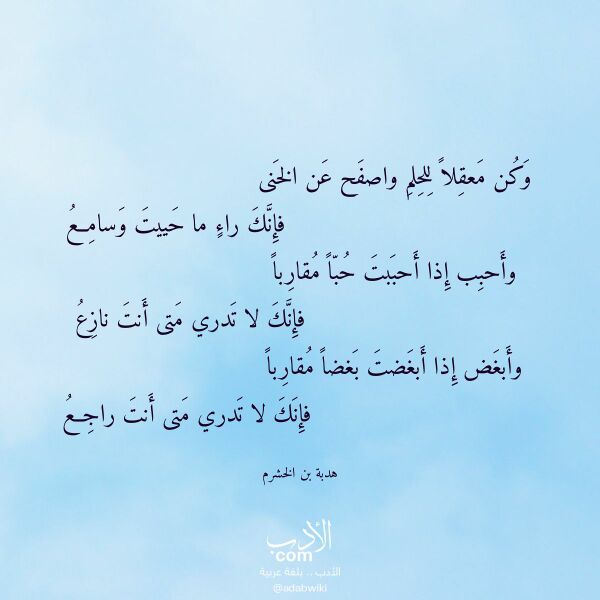 وَكُن مَعقِلاً لِلحِلمِ واصفَح عَن الخَنى
فإِنَّكَ راءٍ ما حَييتَ وَسامِعُ
وأَحبِب إِذا أَحبَبتَ حُبّاً مُقارِباً
فإِنَّكَ لا تَدري مَتى أَنتَ نازِعُ
وأَبغَض إِذا أَبغَضتَ بَغضاً مُقارِباً
فإِنَكَ لا تَدري مَتى أَنتَ راجِعُ
هدبة بن الخشرم
الأدب
com
الأدب .. بلغة عربية
@adabwiki